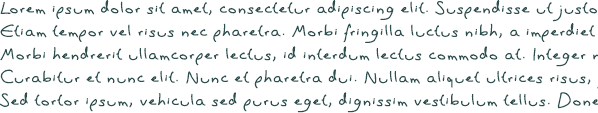 Lorem ipsum dolor sit amet, consectetur adipiscing elit. Suspendisse ut justo
Etiam tempor vel risus nec pharetra. Morbi fringilla luctus nibh, a imperdiet
Morbi hendrerit ullamcorper lectus, id interdum lectus commodo at. Integer
Curabitur et nunc elit. Nunc et pharetra dui. Nullam aliquet ultrices risus,
Sed tortor ipsum, vehicula sed purus eget, dignissim vestibulum tellus. Done